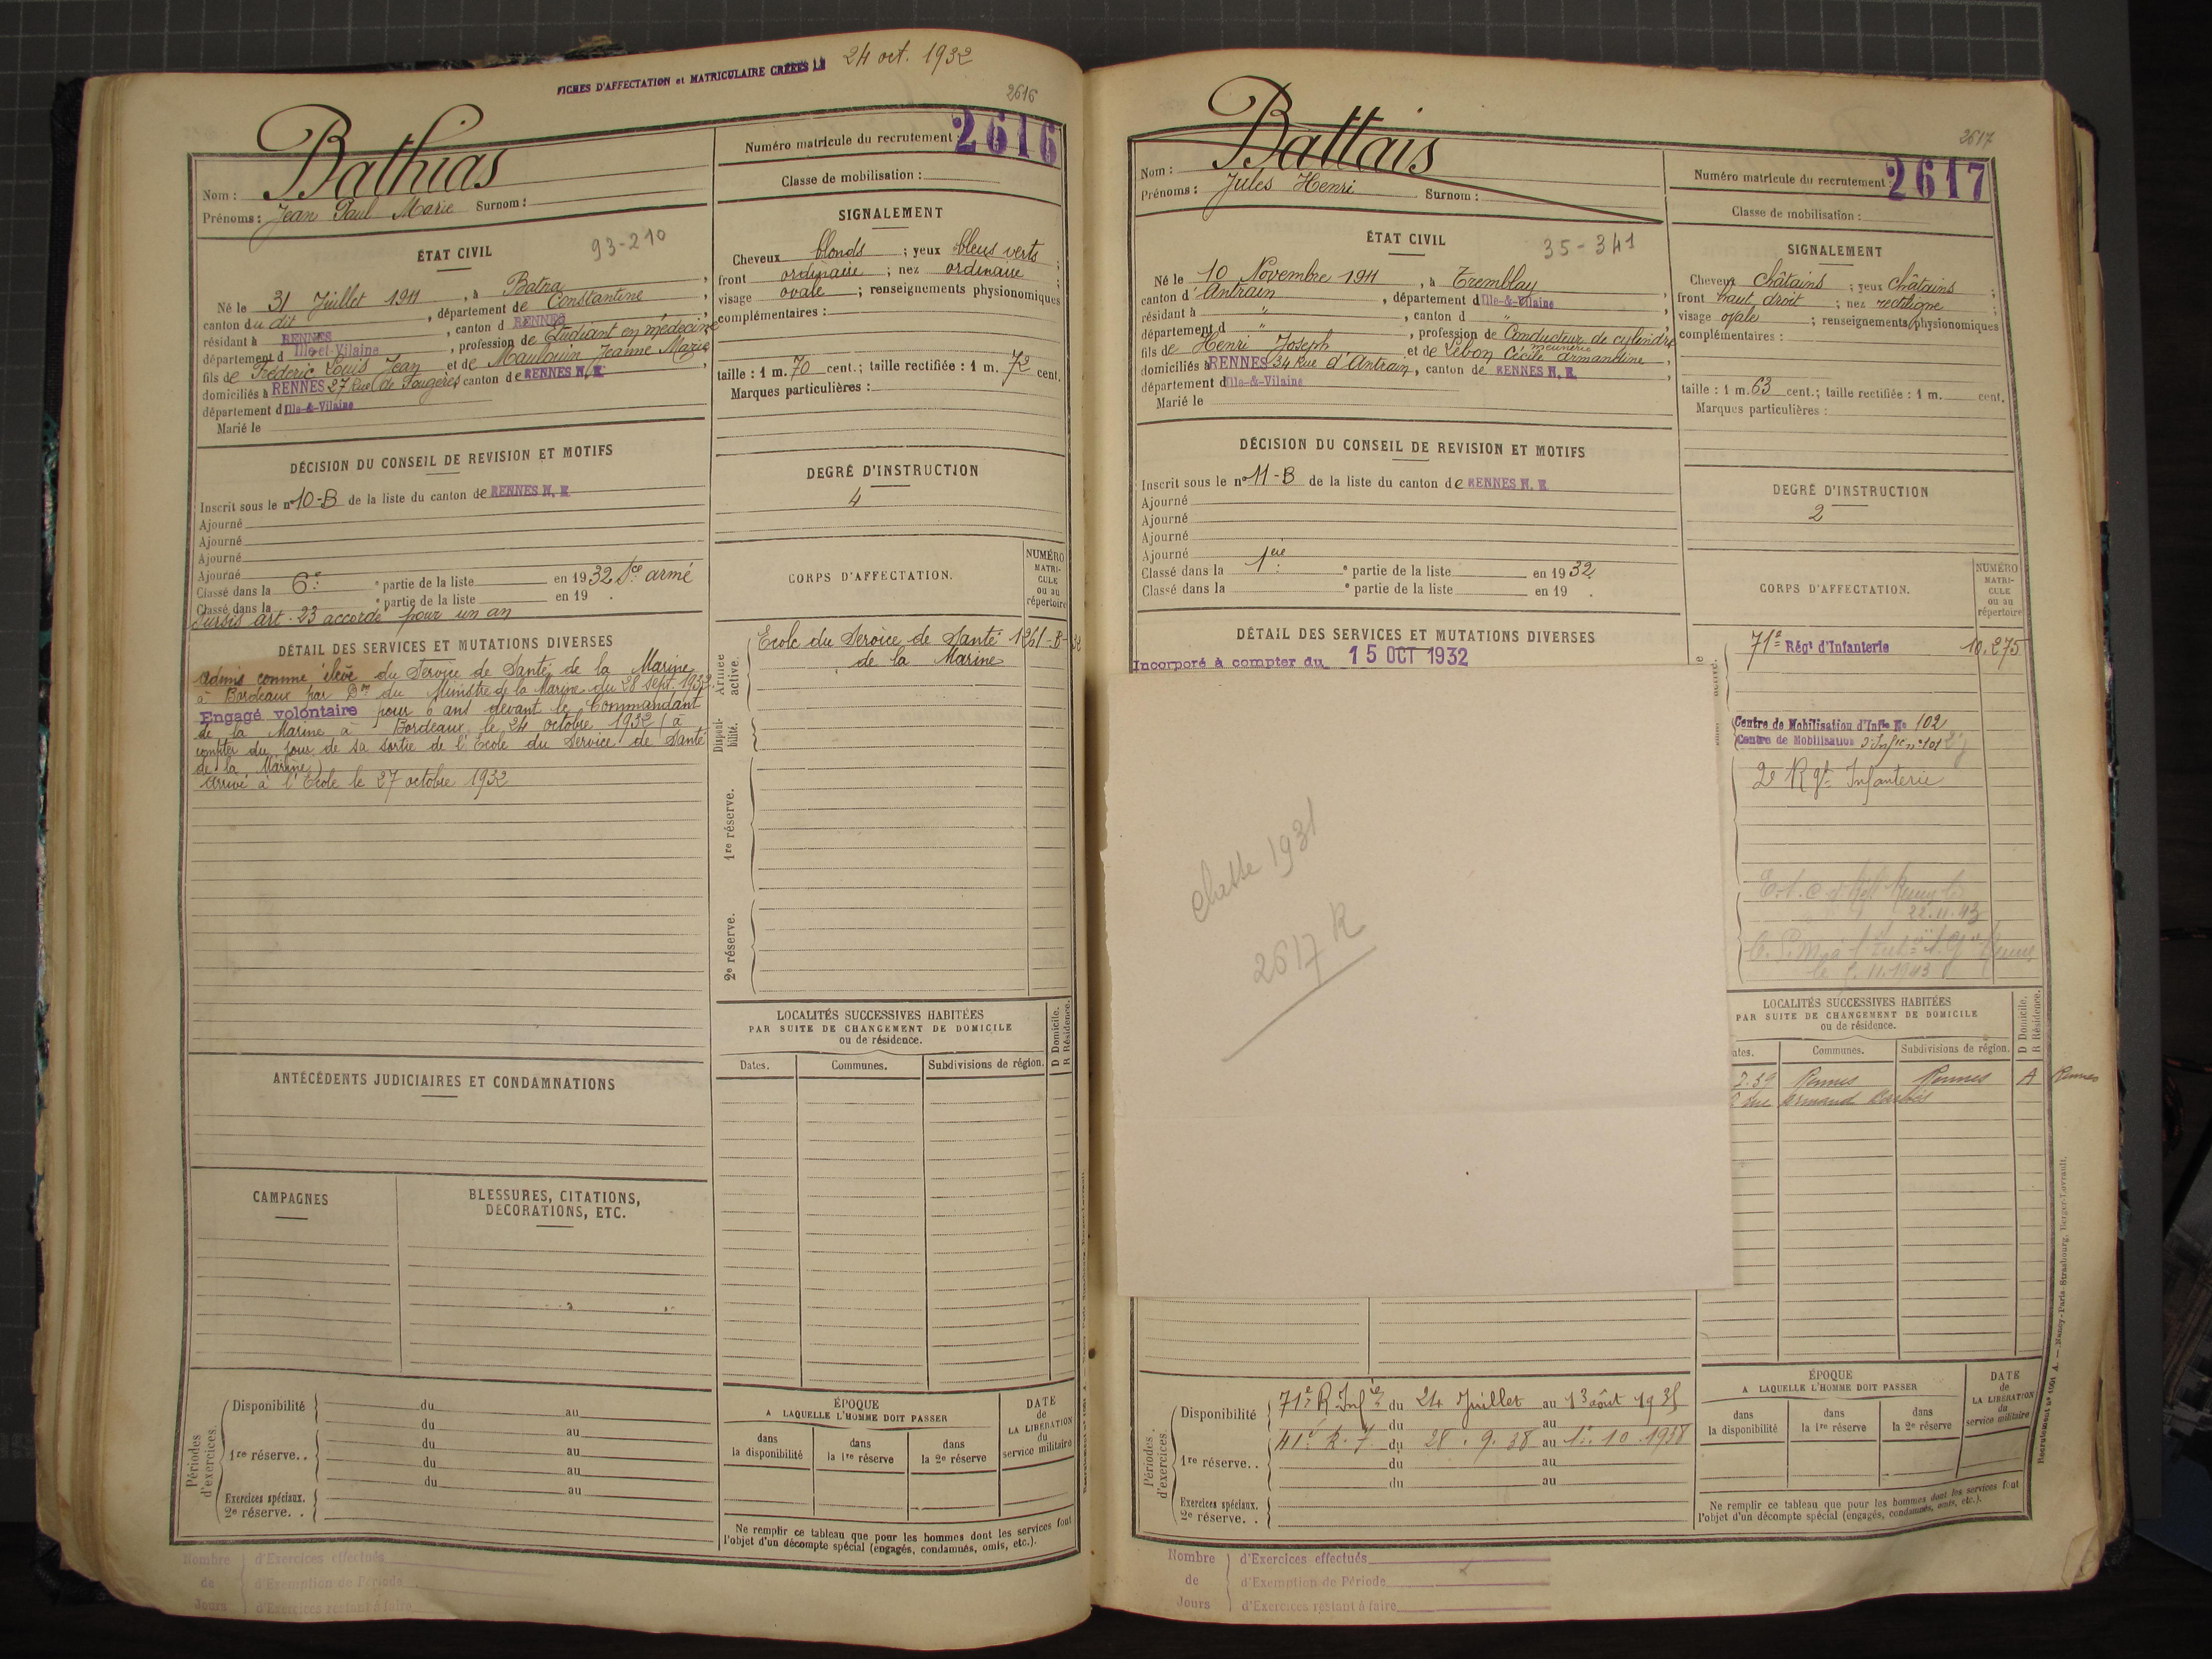 FICHES D'AFFECTATION et MATRICULAIRE CRÉÉES LE 24 oct. 1932
2616
Nom : Bathias
Prénoms : Jean Paul Marie Surnom :
Numéro matricule du recrutement : 2616
Classe de mobilisation :
ÉTAT CIVIL
93-210
Né le 31 Juillet 1911, à Batna,
canton du dit, département de Constantine,
résidant à RENNES, canton d RENNES
département d Ille-et-Vilaine, profession de Etudiant en médecine
fils de Fréderic Louis Jean et de Maubouin Jeanne Marie
domiciliés à RENNES 27 Rue de Fougères canton de RENNES N. E.,
département d Ille-&-Vilaine
Marié le
SIGNALEMENT
Cheveux blonds ; yeux bleus verts ;
front ordinaire ; nez ordinaire ;
visage ovale ; renseignements physionomiques
complémentaires :
taille : 1 m. 70 cent. ; taille rectifiée : 1 m. 72 cent.
Marques particulières :
DÉCISION DU CONSEIL DE REVISION ET MOTIFS
Inscrit sous le n° 10-B de la liste du canton de RENNES N. E.
Ajourné
Ajourné
Ajourné
Ajourné
Classé dans la 6e e partie de la liste en 1932 Sce armé
Classé dans la e partie de la liste en 19 .
Sursis art. 23 accordé pour un an
DEGRÉ D'INSTRUCTION
4
DÉTAIL DES SERVICES ET MUTATIONS DIVERSES
Admis comme élève du Service de Santé de la Marine
à Bordeaux par Don du Ministre de la Marine du 28 sept. 1932.
Engagé volontaire pour 6 ans devant le Commandant
de la Marine à Bordeaux le 24 octobre 1932 (à
compter du jour de sa sortie de l'Ecole du Service de Santé
de la Marine)
Arrivé à l'Ecole le 27 octobre 1932
CORPS D'AFFECTATION.
NUMÉRO MATRI-CULE ou au répertoire
Armée active.
Ecole du Service de Santé 1261-B-32
de la Marine
Disponi-bilité.
1re réserve.
2e réserve.
LOCALITÉS SUCCESSIVES HABITÉES
PAR SUITE DE CHANGEMENT DE DOMICILE
ou de résidence.
D Domicile.
R Résidence.
Dates. Communes. Subdivisions de région.
ANTÉCÉDENTS JUDICIAIRES ET CONDAMNATIONS
CAMPAGNES
BLESSURES, CITATIONS,
DÉCORATIONS, ETC.
Périodes d'exercices.
Disponibilité du au
du au
1re réserve. . du au
du au
du au
Exercices spéciaux.
2e réserve. .
ÉPOQUE
A LAQUELLE L'HOMME DOIT PASSER
dans la disponibilité
dans la 1re réserve
dans la 2e réserve
DATE de LA LIBÉRATION du service militaire
Ne remplir ce tableau que pour les hommes dont les services font
l'objet d'un décompte spécial (engagés, condamnés, omis, etc.).
Nombre de Jours
d'Exercices effectués
d'Exemption de Période
d'Exercices restant à faire
2617
Nom : Battais
Prénoms : Jules Henri Surnom :
Numéro matricule du recrutement 2617
Classe de mobilisation :
ÉTAT CIVIL
35-341
Né le 10 Novembre 1911, à Tremblay,
canton d'Antrain, département d Ille-&-Vilaine
résidant à ", canton d "
département d ", profession de Conducteur de cylindre
meunerie
fils de Henri Joseph et de Lebon Cécile Armandine,
domiciliés à RENNES 34 Rue d'Antrain, canton de RENNES N. E.,
département d Ille-&-Vilaine
Marié le
SIGNALEMENT
Cheveux châtains ; yeux châtains ;
front haut droit ; nez rectiligne ;
visage ovale ; renseignements physionomiques
complémentaires :
taille : 1 m. 63 cent. ; taille rectifiée : 1 m. cent.
Marques particulières :
DÉCISION DU CONSEIL DE REVISION ET MOTIFS
Inscrit sous le n° 11-B de la liste du canton de RENNES N. E.
Ajourné
Ajourné
Ajourné
Ajourné
Classé dans la 1ère e partie de la liste en 1932.
Classé dans la e partie de la liste en 19 .
DEGRÉ D'INSTRUCTION
2
DÉTAIL DES SERVICES ET MUTATIONS DIVERSES
Incorporé à compter du 15 OCT 1932
CORPS D'AFFECTATION.
NUMÉRO MATRI-CULE ou au répertoire
71e Régt d'Infanterie 10.275
Centre de Mobilisation d'Infie No 102
Centre de Mobilisation d'Infie n° 101
2e Rgt Infanterie
22.11.43
classe 1931
2617 R
LOCALITÉS SUCCESSIVES HABITÉES
PAR SUITE DE CHANGEMENT DE DOMICILE
ou de résidence.
D Domicile.
R Résidence.
ates. Communes. Subdivisions de région.
2.39 Rennes Rennes A Rennes
rue Armand Barbès
Périodes d'exercices.
Disponibilité 71e R. Infie du 24 Juillet au 13 août 1935
du au
41e R. I. du 28.9.38 au 1er.10.1938
1re réserve. . du au
du au
Exercices spéciaux.
2e réserve. .
ÉPOQUE
A LAQUELLE L'HOMME DOIT PASSER
dans la disponibilité
dans la 1re réserve
dans la 2e réserve
DATE de LA LIBÉRATION du service militaire
Ne remplir ce tableau que pour les hommes dont les services font
l'objet d'un décompte spécial (engagés, condamnés, omis, etc.).
Recrutement n° 1001 A. — Nancy-Paris-Strasbourg, Berger-Levrault.
Nombre de Jours
d'Exercices effectués
d'Exemption de Période
d'Exercices restant à faire